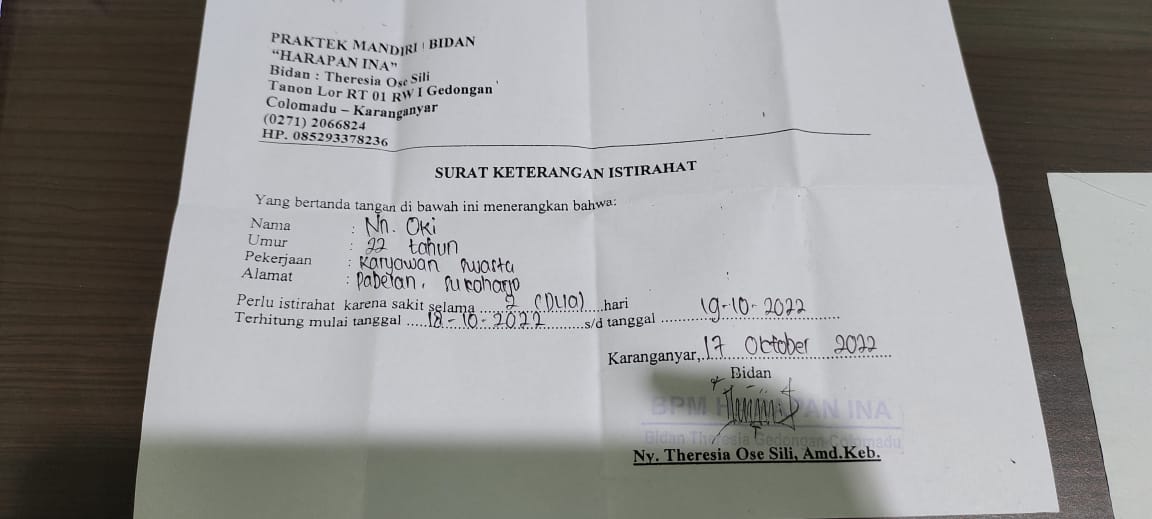 PRAKTEK MANDIRI BIDAN
“HARAPAN INA”
Bidan : Theresia Ose Sili
Tanon Lor RT 01 RW I Gedongan
Colomadu – Karanganyar
(0271) 2066824
HP. 085293378236
SURAT KETERANGAN ISTIRAHAT
Yang bertanda tangan di bawah ini menerangkan bahwa:
Nama : Nn. Oki
Umur : 22 tahun
Pekerjaan : Karyawan swasta
Alamat : Pabelan, Sukoharjo
Perlu istirahat karena sakit selama ...2 (DUA)...hari
Terhitung mulai tanggal ....18-10-2022......s/d tanggal 19-10-2022
Karanganyar, 17 Oktober 2022
Bidan
BPM HARAPAN INA
Bidan Theresia Gedongan Colomadu
Ny. Theresia Ose Sili, Amd.Keb.